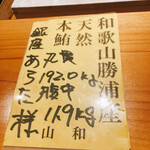 和歌山勝浦産
天然
本鮪
丸貫 192.0kg
腹中 119kg
和
山
銀座
あらた様